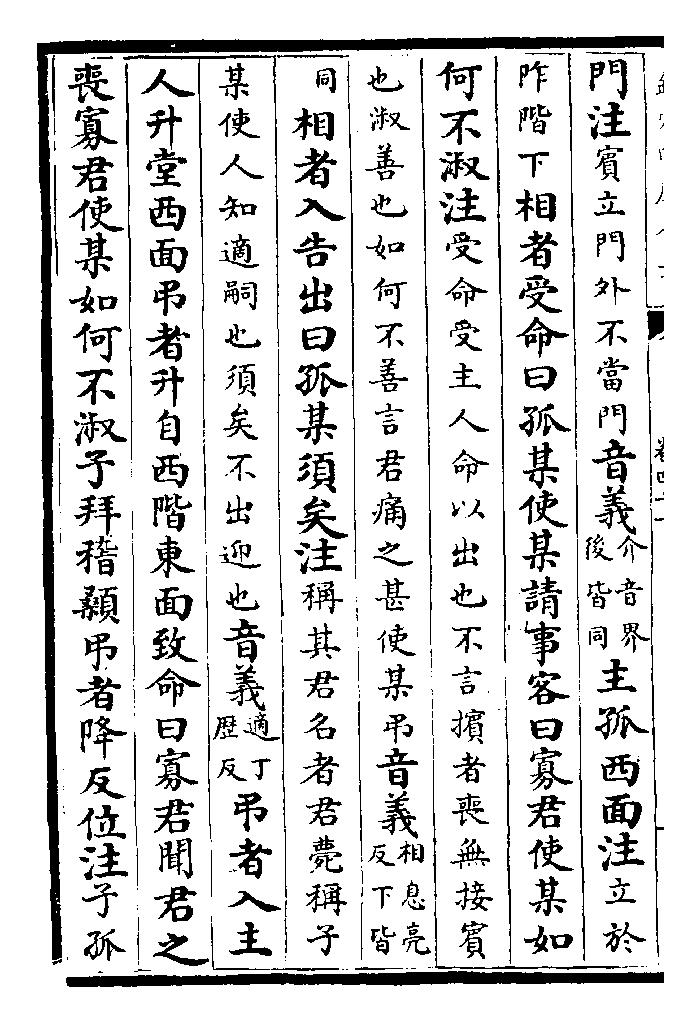 門注賓立門外不當門音義介音界後皆同主孤西面注立於
阼階下相者受命曰孤某使某請事客曰寡君使某如
何不淑注受命受主人命以出也不言擯者喪無接賓
也淑善也如何不善言君痛之甚使某弔音義相息亮反下皆
同相者入告出曰孤某須矣注稱其君名者君薨稱子
某使人知適嗣也須矣不出迎也音義適丁歷反弔者入主
人升堂西面弔者升自西階東面致命曰寡君聞君之
喪寡君使某如何不淑子拜稽顙弔者降反位注子孤